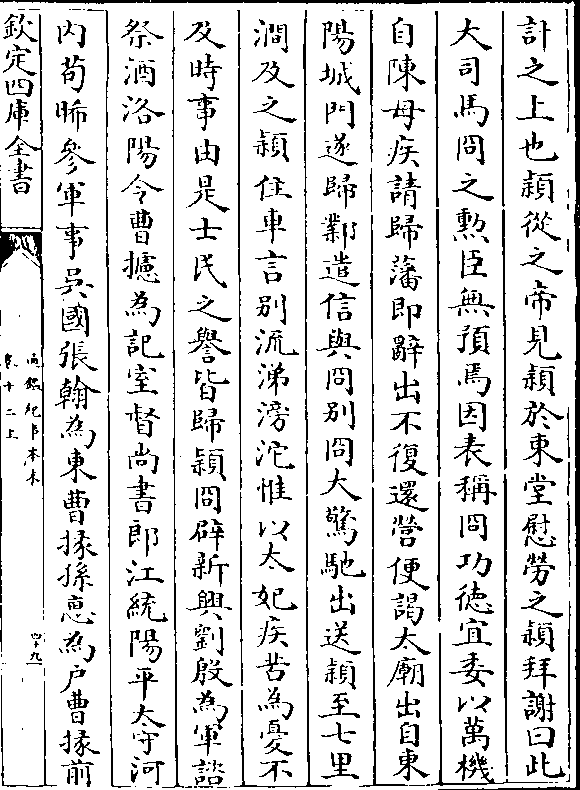 計之上也穎從之帝見穎於東堂慰勞之穎拜謝曰此
大司馬冏之勲臣無預焉因表稱冏功徳宜委以萬機
自陳母疾請歸藩即辭出不復還營便謁太廟出自東
陽城門遂歸鄴遣信與冏別冏大驚馳出送穎至七里
澗及之穎住車言別流涕滂沱惟以太妃疾苦為憂不
及時事由是士民之譽皆歸穎冏辟新興劉殷為軍諮
祭酒洛陽令曹攄為記室督尚書郎江統陽平太守河
内荀晞參軍事吳國張翰為東曹掾孫惠為戶曹掾前
欽定四庫全書
通鑑紀事本末
卷十二上
四十九